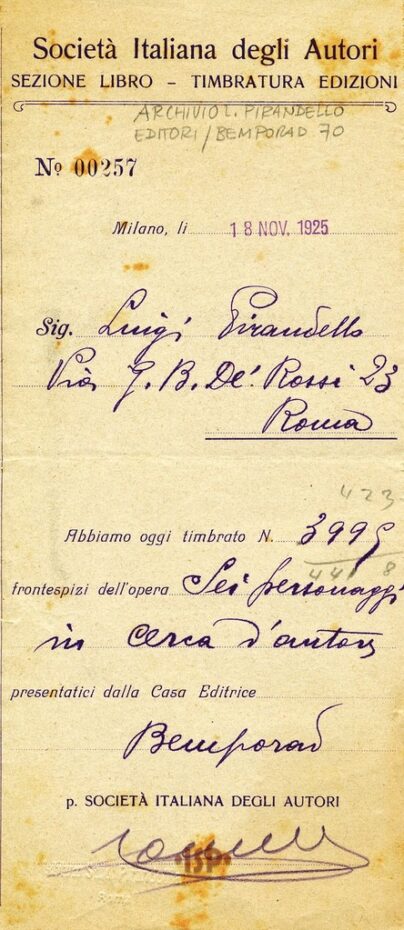 Società Italiana degli Autori
SEZIONE LIBRO – TIMBRATURA EDIZIONI
ARCHIVIO L. PIRANDELLO
EDITORI / BEMPORAD 70
No 00257
Milano, li 18 NOV. 1925
Sig. Luigi Pirandello
Via G. B. De' Rossi 23
Roma
423
Abbiamo oggi timbrato N. 3995
frontespizi dell'opera Sei personaggi
in cerca d'autore
presentatici dalla Casa Editrice
Bemporad
p. SOCIETÀ ITALIANA DEGLI AUTORI